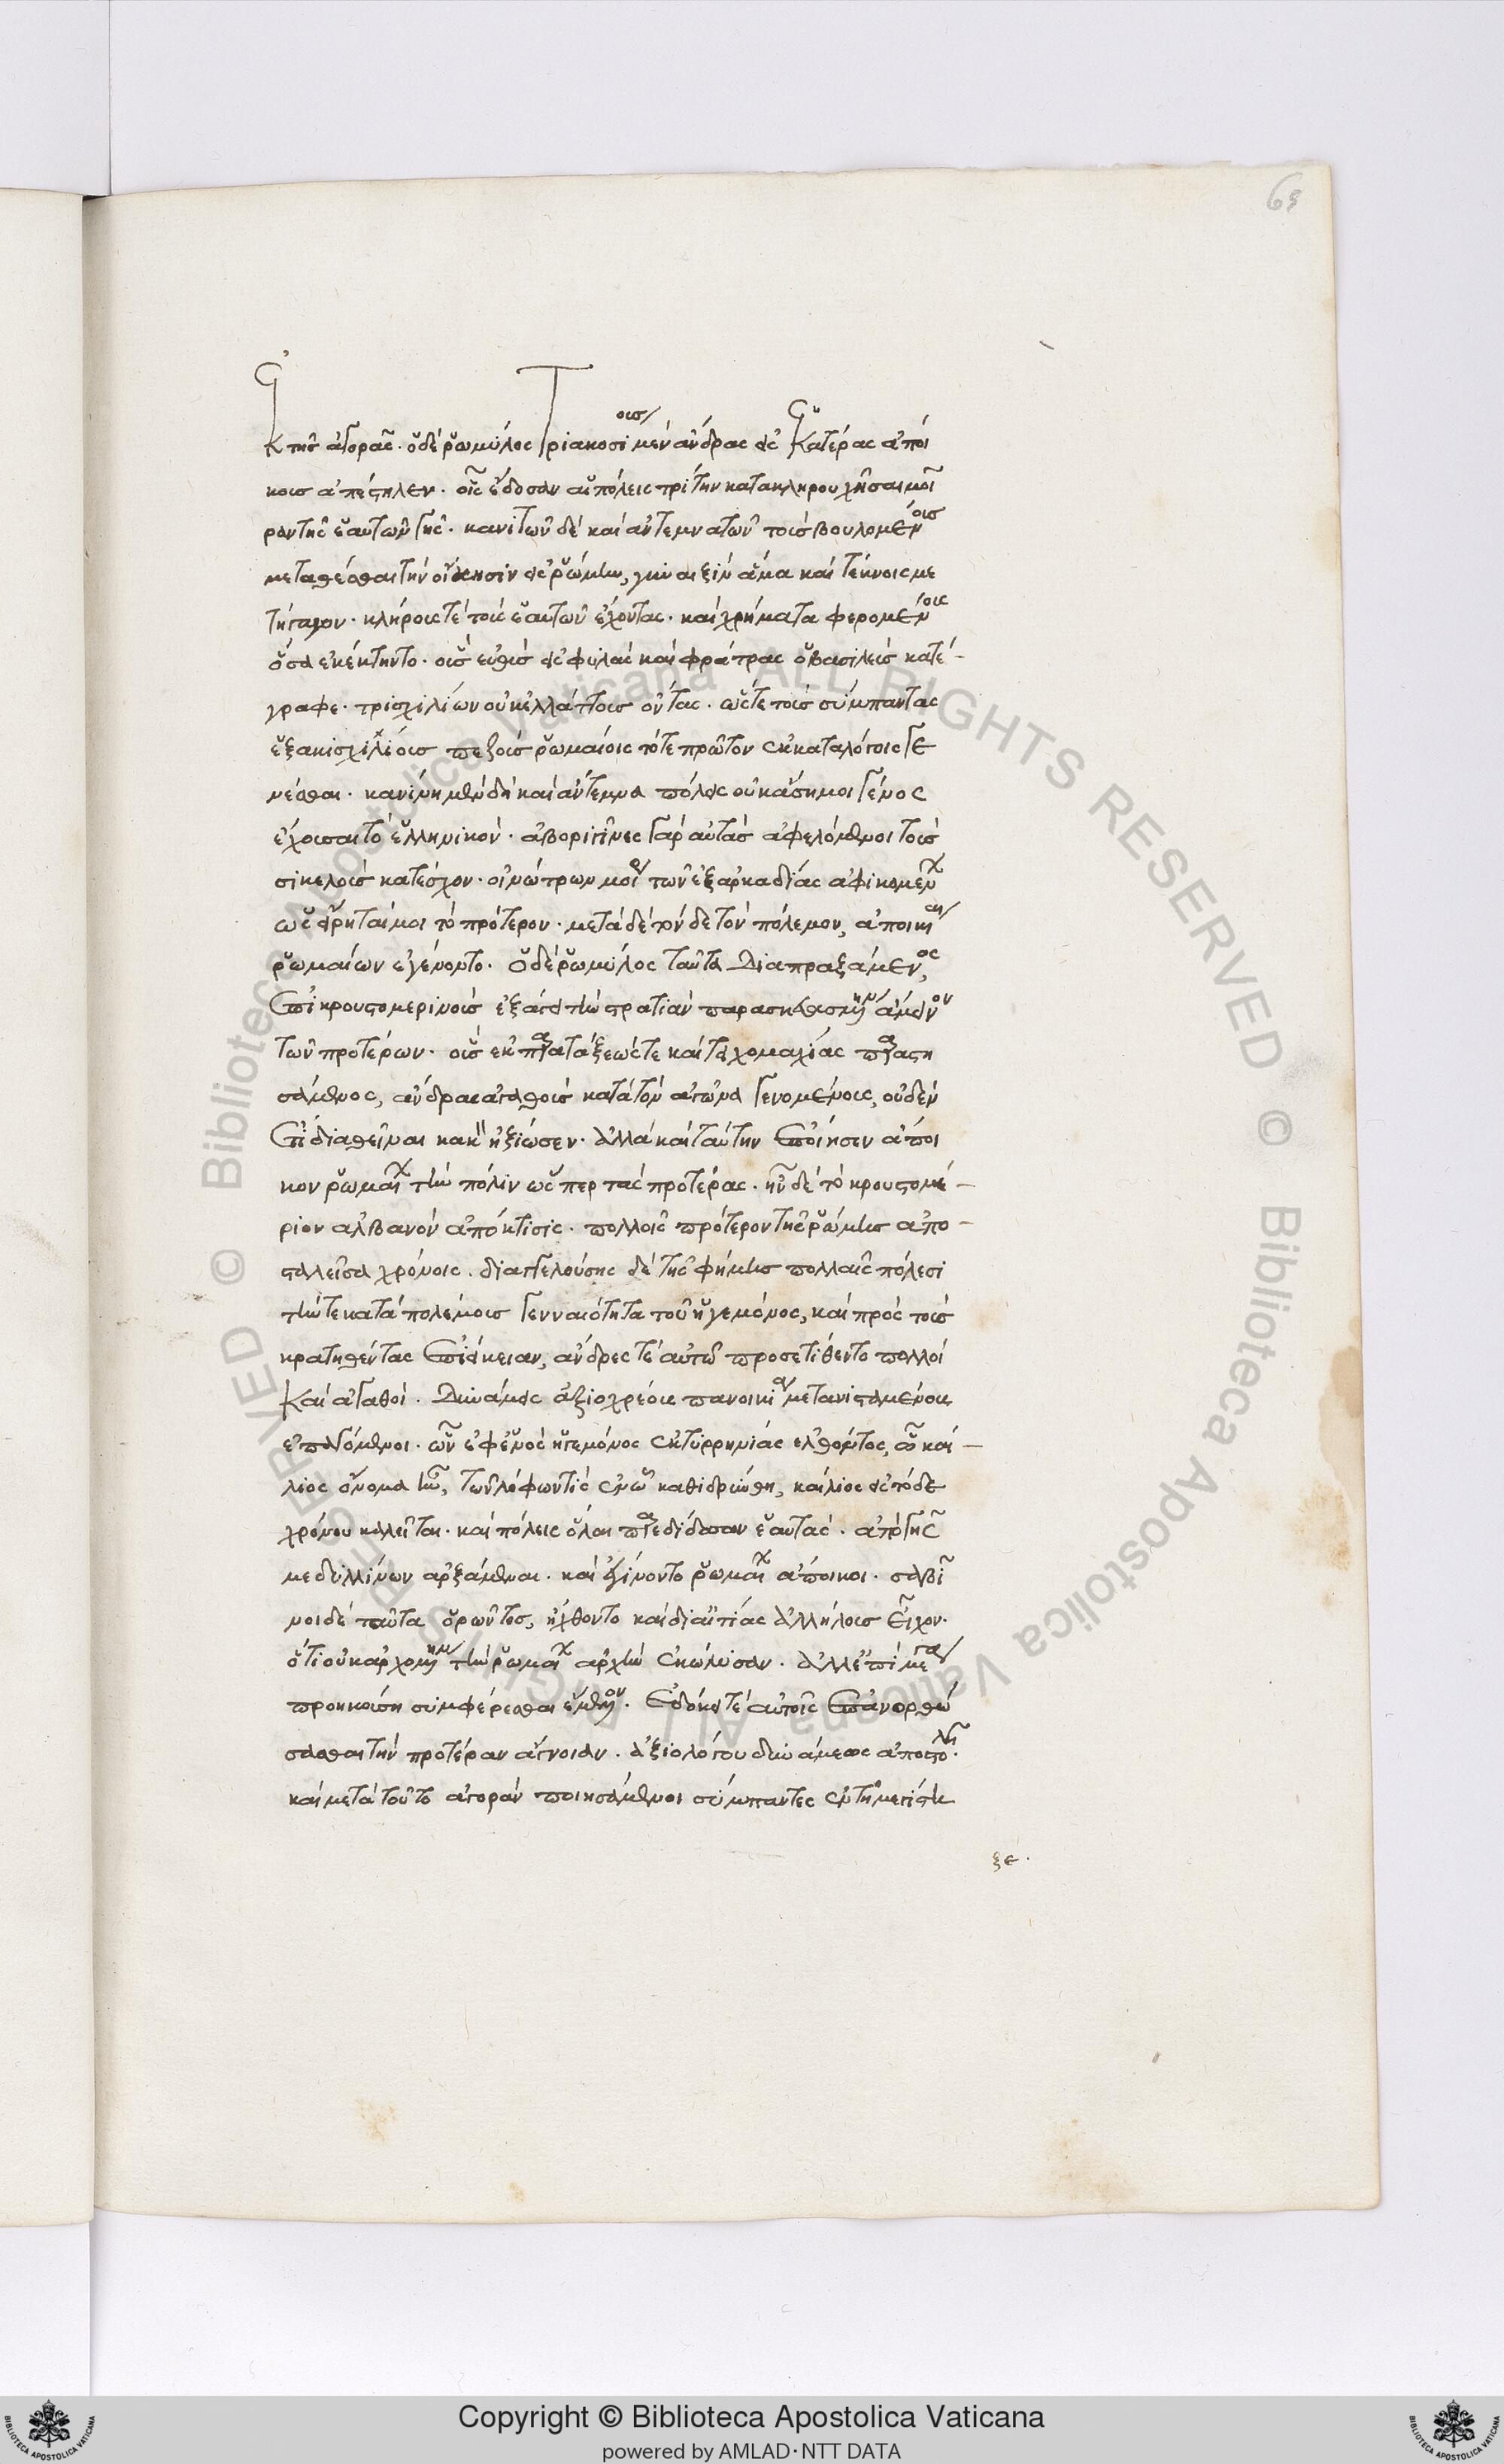 69
ἐκ τῆς ἀγορᾶς. ὁ δὲ ῥωμύλος τριακοσίους μὲν ἄνδρας εἰς ἑκατέρας ἀποί
κους ἀπέστηλεν. οἷς ἔδοσαν αἱ πόλεις τρίτην κατακληρουχῆσαι μοῖ
ραν τῆς ἑαυτῶν γῆς. κανιτῶν δὲ καὶ ἀντεμνατῶν τοὺς βουλομένους
μεταθέσθαι τὴν οἴκησιν εἰς ῥώμην, γυναιξὶν ἅμα καὶ τέκνοις με
τήγαγον. κλήρους τὲ τοὺς ἑαυτῶν ἔχοντας. καὶ χρήματα φερομένους
ὅσα ἐκέκτηντο. οὓς εὐθὺς εἰς φυλὰς καὶ φράτρας ὁ βασιλεὺς κατέ-
γραφε. τρισχιλίων οὐκ ἐλλάττους ὄντας. ὥστε τοὺς σύμπαντας
ἑξακισχιλίους πεζοὺς ῥωμαίοις τότε πρῶτον ἐκ καταλόγου γε
νέσθαι. κανίνη μὲν δὴ καὶ ἄντεμνα πόλεις οὐκ ἄσημοι γένος
ἔχουσαι τὸ ἑλληνικόν. ἀβοριγῖνες γὰρ αὐτὰς ἀφελόμενοι τοὺς
σικελοὺς κατέσχον. οἰνώτρων μοῖρα τῶν ἐξ ἀρκαδίας ἀφικομένων
ὡς εἴρηταί μοι τὸ πρότερον. μετὰ δὲ τόνδε τὸν πόλεμον, ἀποικίαι
ῥωμαίων ἐγένοντο. ὁ δὲ ῥωμύλος ταῦτα διαπραξάμενος,
ἐπὶ κρουστομερίνους ἐξάγει τὴν στρατιὰν παρεσκευασμένους ἄμεινον
τῶν προτέρων. οὓς ἐκ παρατάξεώς τε καὶ τειχομαχίας παραστη
σάμενος, ἄνδρας ἀγαθοὺς κατὰ τὸν ἀγῶνα γενομένους, οὐδὲν
ἔτι διαθεῖναι κακὸν ἠξίωσεν. ἀλλὰ καὶ ταύτην ἐποίησεν ἄποι
κον ῥωμαίων τὴν πόλιν ὥσπερ τὰς προτέρας. ἦν δὲ τὸ κρουστομέ-
ριον ἀλβανὸν ἀπόκτισις. πολλοῖς πρότερον τῆς ῥώμης ἀπο-
σταλεῖσα χρόνοις. διαγγελούσης δὲ τῆς φήμης πολλαῖς πόλεσι
τήν τε κατὰ πολέμους γενναιότητα τοῦ ἡγεμόνος, καὶ πρὸς τοὺς
κρατηθέντας ἐπιείκειαν, ἄνδρες τὲ αὐτῷ προσετίθεντο πολλοὶ
καὶ ἀγαθοί. δυνάμεις ἀξιοχρέους πανοικίᾳ μετανισταμένους
ἐπαγόμενοι. ὧν ἐφ' ἑνὸς ἡγεμόνος ἐκ τυρρηνίας ἐλθόντος, ᾧ καί-
λιος ὄνομα ἦν, τῶν λόφων τίς ἐν ᾧ καθιδρύθη, καίλιος εἰς τόδε
χρόνου καλεῖται. καὶ πόλεις ὅλαι παρεδίδοσαν ἑαυτάς. ἀπὸ τῆς
μεδυλλίνων ἀρξάμεναι. καὶ ἐγίνοντο ῥωμαίων ἄποικοι. σαβῖ
νοι δὲ ταῦτα ὁρῶντες, ἤχθοντο καὶ δι' αἰτίας ἀλλήλους εἶχον.
ὅτι οὐκ ἀρχομένην τὴν ῥωμαίων ἀρχὴν ἐκώλυσαν. ἀλλ' ἐπὶ μέγα
προηκούσῃ συμφέρεσθαι ἔμελλον. ἐδόκει τὲ αὐτοῖς ἐπανορθώ
σασθαι τὴν προτέραν ἄγνοιαν. ἀξιολόγου δυνάμεως ἀποστολῇ.
καὶ μετὰ τοῦτο ἀγορὰν ποιησάμενοι σύμπαντες ἐν τῇ μεγίστῃ
ξε.